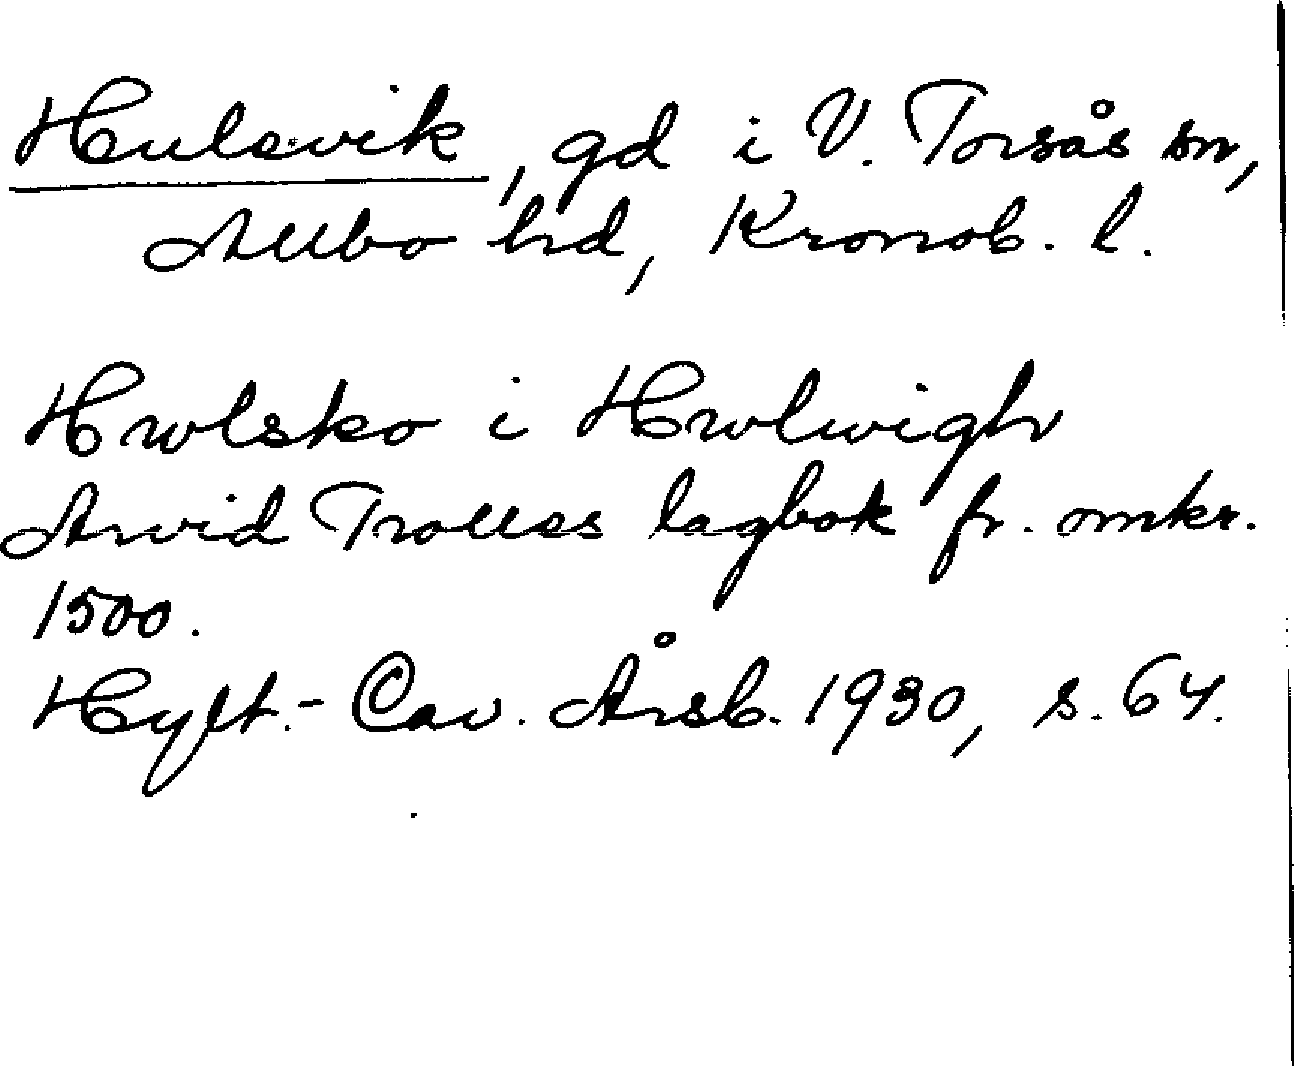 Hulevik, gd i V. Torsås sn,
Allbo hd, Kronob. l.
Hwlsko i Hwlwigh
Arvid Trolles lagbok fr. omkr.
1500.
Hylt.-Cav. Årsb. 1930, s. 64.